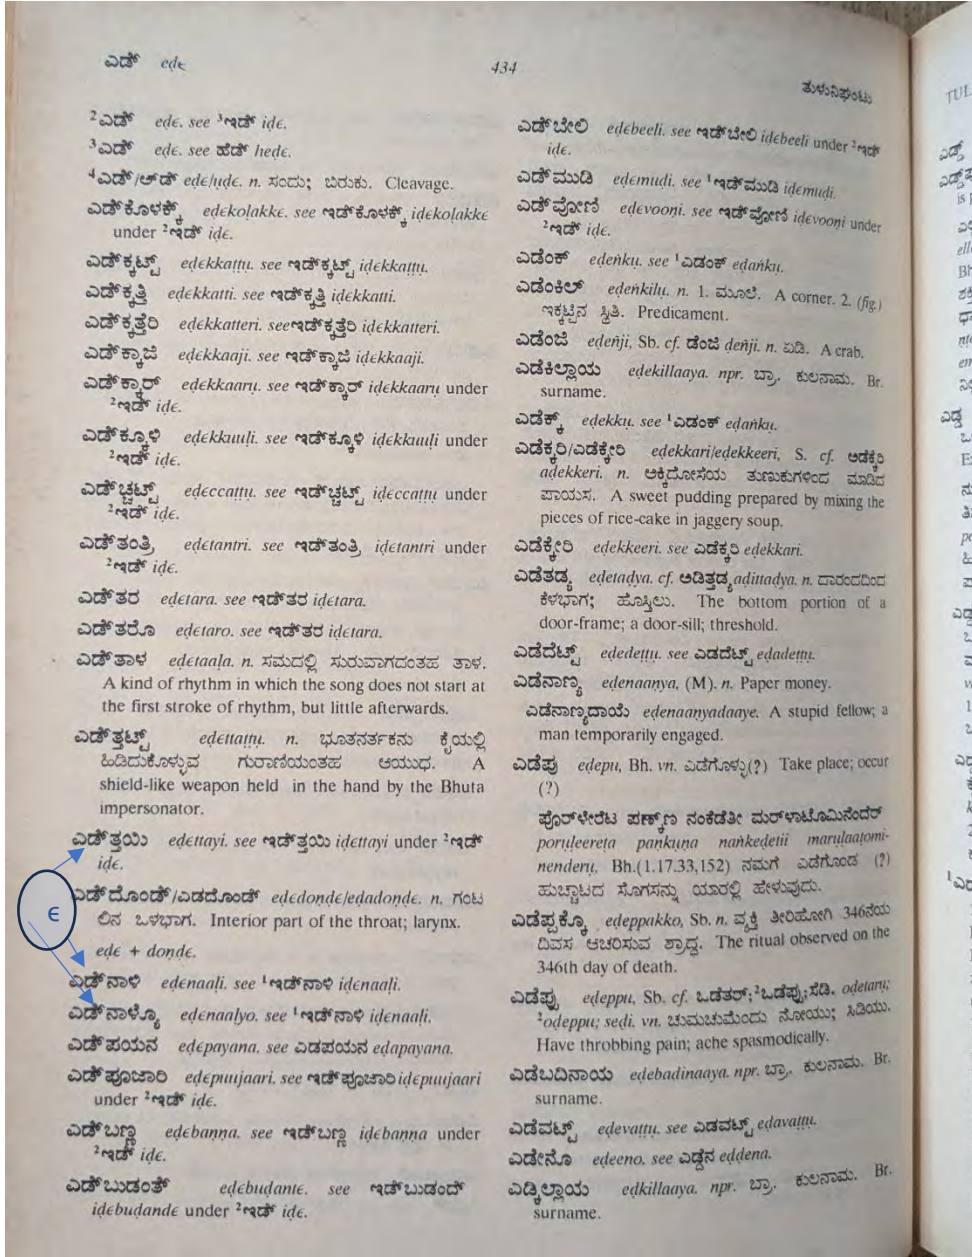 ಎಡ್ eḍϵ
434
ತುಳುನಿಘಂಟು
²ಎಡ್ eḍϵ. see ³ಇಡ್ iḍϵ.
³ಎಡ್ eḍϵ. see ಹೆಡ್ heḍϵ.
⁴ಎಡ್/ಉಡ್ eḍϵ/uḍϵ. n. ಸಂದು; ಬಿರುಕು. Cleavage.
ಎಡ್‌ಕೊಳಕ್ಕ್ eḍϵkoḷakkϵ. see ಇಡ್‌ಕೊಳಕ್ಕ್ iḍϵkoḷakkϵ
under ²ಇಡ್ iḍϵ.
ಎಡ್‌ಕ್ಕಟ್ಟ್ eḍϵkkaṭṭu. see ಇಡ್‌ಕ್ಕಟ್ಟ್ iḍϵkkaṭṭu.
ಎಡ್‌ಕ್ಕತ್ತಿ eḍϵkkatti. see ಇಡ್‌ಕ್ಕತ್ತಿ iḍϵkkatti.
ಎಡ್‌ಕ್ಕತ್ತೆರಿ eḍϵkkatteri. see ಇಡ್‌ಕ್ಕತ್ತೆರಿ iḍϵkkatteri.
ಎಡ್‌ಕ್ಕಾಜಿ eḍϵkkaaji. see ಇಡ್‌ಕ್ಕಾಜಿ iḍϵkkaaji.
ಎಡ್‌ಕ್ಕಾರ್ eḍϵkkaaru. see ಇಡ್‌ಕ್ಕಾರ್ iḍϵkkaaru under
²ಇಡ್ iḍϵ.
ಎಡ್‌ಕ್ಕೂಳಿ eḍϵkkuuḷi. see ಇಡ್‌ಕ್ಕೂಳಿ iḍϵkkuuḷi under
²ಇಡ್ iḍϵ.
ಎಡ್‌ಚ್ಚಟ್ಟ್ eḍϵccaṭṭu. see ಇಡ್‌ಚ್ಚಟ್ಟ್ iḍϵccaṭṭu under
²ಇಡ್ iḍϵ.
ಎಡ್‌ತಂತ್ರಿ eḍϵtantri. see ಇಡ್‌ತಂತ್ರಿ iḍϵtantri under
²ಇಡ್ iḍϵ.
ಎಡ್‌ತರ eḍϵtara. see ಇಡ್‌ತರ iḍϵtara.
ಎಡ್‌ತರೊ eḍϵtaro. see ಇಡ್‌ತರ iḍϵtara.
ಎಡ್‌ತಾಳ eḍϵtaaḷa. n. ಸಮದಲ್ಲಿ ಸುರುವಾಗದಂತಹ ತಾಳ.
A kind of rhythm in which the song does not start at
the first stroke of rhythm, but little afterwards.
ಎಡ್‌ತ್ತಟ್ಟ್ eḍϵttaṭṭu. n. ಭೂತನರ್ತಕನು ಕೈಯಲ್ಲಿ
ಹಿಡಿದುಕೊಳ್ಳುವ ಗುರಾಣಿಯಂತಹ ಆಯುಧ. A
shield-like weapon held in the hand by the Bhuta
impersonator.
ಎಡ್‌ತ್ತಯಿ eḍϵttayi. see ಇಡ್‌ತ್ತಯಿ iḍϵttayi under ²ಇಡ್
iḍϵ.
ϵ
ಎಡ್‌ದೊಂಡ್/ಎಡದೊಂಡ್ eḍϵdoṇḍϵ/eḍadoṇḍϵ. n. ಗಂಟ
ಲಿನ ಒಳಭಾಗ. Interior part of the throat; larynx.
eḍϵ + doṇḍϵ.
ಎಡ್‌ನಾಳಿ eḍϵnaaḷi. see ¹ಇಡ್‌ನಾಳಿ iḍϵnaaḷi.
ಎಡ್‌ನಾಳ್ಯೊ eḍϵnaaḷyo. see ¹ಇಡ್‌ನಾಳಿ iḍϵnaaḷi.
ಎಡ್‌ಪಯನ eḍϵpayana. see ಎಡಪಯನ eḍapayana.
ಎಡ್‌ಪೂಜಾರಿ eḍϵpuujaari. see ಇಡ್‌ಪೂಜಾರಿ iḍϵpuujaari
under ²ಇಡ್ iḍϵ.
ಎಡ್‌ಬಣ್ಣ eḍϵbaṇṇa. see ಇಡ್‌ಬಣ್ಣ iḍϵbaṇṇa under
²ಇಡ್ iḍϵ.
ಎಡ್‌ಬುಡಂತ್ eḍϵbuḍantϵ. see ಇಡ್‌ಬುಡಂದ್
iḍϵbuḍandϵ under ²ಇಡ್ iḍϵ.
ಎಡ್‌ಬೇಲಿ eḍϵbeeli. see ಇಡ್‌ಬೇಲಿ iḍϵbeeli under ²ಇಡ್
iḍϵ.
ಎಡ್‌ಮುಡಿ eḍϵmuḍi. see ¹ಇಡ್‌ಮುಡಿ iḍϵmuḍi.
ಎಡ್‌ವೋಣಿ eḍϵvooṇi. see ಇಡ್‌ವೋಣಿ iḍϵvooṇi under
²ಇಡ್ iḍϵ.
ಎಡೆಂಕ್ eḍeṅku. see ¹ಎಡಂಕ್ eḍaṅku.
ಎಡೆಂಕಿಲ್ eḍeṅkilu. n. 1. ಮೂಲೆ. A corner. 2. (fig.)
ಇಕ್ಕಟ್ಟಿನ ಸ್ಥಿತಿ. Predicament.
ಎಡೆಂಜಿ eḍeñji, Sb. cf. ಡೆಂಜಿ ḍeñji. n. ಏಡಿ. A crab.
ಎಡೆಕಿಲ್ಲಾಯ eḍekillaaya. npr. ಬ್ರಾ. ಕುಲನಾಮ. Br.
surname.
ಎಡೆಕ್ಕ್ eḍekku. see ¹ಎಡಂಕ್ eḍaṅku.
ಎಡೆಕ್ಕರಿ/ಎಡೆಕ್ಕೇರಿ eḍekkari/eḍekkeeri, S. cf. ಅಡೆಕ್ಕೆರಿ
aḍekkeri. n. ಅಕ್ಕಿದೋಸೆಯ ತುಣುಕುಗಳಿಂದ ಮಾಡಿದ
ಪಾಯಸ. A sweet pudding prepared by mixing the
pieces of rice-cake in jaggery soup.
ಎಡೆಕ್ಕೇರಿ eḍekkeeri. see ಎಡೆಕ್ಕರಿ eḍekkari.
ಎಡೆತಡ್ಯ eḍetaḍya. cf. ಅಡಿತ್ತಡ್ಯ aḍittaḍya. n. ದಾರಂದದಿಂದ
ಕೆಳಭಾಗ; ಹೊಸ್ತಿಲು. The bottom portion of a
door-frame; a door-sill; threshold.
ಎಡೆದೆಟ್ಟ್ eḍedeṭṭu. see ಎಡದೆಟ್ಟ್ eḍadeṭṭu.
ಎಡೆನಾಣ್ಯ eḍenaaṇya, (M). n. Paper money.
ಎಡೆನಾಣ್ಯದಾಯೆ eḍenaaṇyadaaye. A stupid fellow; a
man temporarily engaged.
ಎಡೆಪು eḍepu, Bh. vn. ಎಡೆಗೊಳ್ಳು(?) Take place; occur
(?)
ಪೊರ್ಳೇರೆಟ ಪಣ್ಕ್‌ಣ ನಂಕೆಡೆತೀ ಮರ್‌ಳಾಟೊಮಿನೆಂದೆರ್
poruḷeereṭa paṇkuṇa naṅkeḍetii maruḷaaṭomi-
nenderu, Bh.(1.17.33,152) ನಮಗೆ ಎಡೆಗೊಂಡ (?)
ಹುಚ್ಚಾಟದ ಸೊಗಸನ್ನು ಯಾರಲ್ಲಿ ಹೇಳುವುದು.
ಎಡೆಪ್ಪಕ್ಕೊ eḍeppakko, Sb. n. ವ್ಯಕ್ತಿ ತೀರಿಹೋಗಿ 346ನೆಯ
ದಿವಸ ಆಚರಿಸುವ ಶ್ರಾದ್ಧ. The ritual observed on the
346th day of death.
ಎಡೆಪ್ಪು eḍeppu, Sb. cf. ಒಡೆತರ್; ²ಒಡೆಪ್ಪು; ಸೆಡಿ. oḍetaru;
²oḍeppu; seḍi. vn. ಚುಮಚುಮೆಂದು ನೋಯು; ಸಿಡಿಯು.
Have throbbing pain; ache spasmodically.
ಎಡೆಬದಿನಾಯ eḍebadinaaya. npr. ಬ್ರಾ. ಕುಲನಾಮ. Br.
surname.
ಎಡೆವಟ್ಟ್ eḍevaṭṭu. see ಎಡವಟ್ಟ್ eḍavaṭṭu.
ಎಡೇನೊ eḍeeno. see ಎಡ್ಡೆನ eḍḍena.
ಎಡ್ಕಿಲ್ಲಾಯ eḍkillaaya. npr. ಬ್ರಾ. ಕುಲನಾಮ. Br.
surname.
TUL